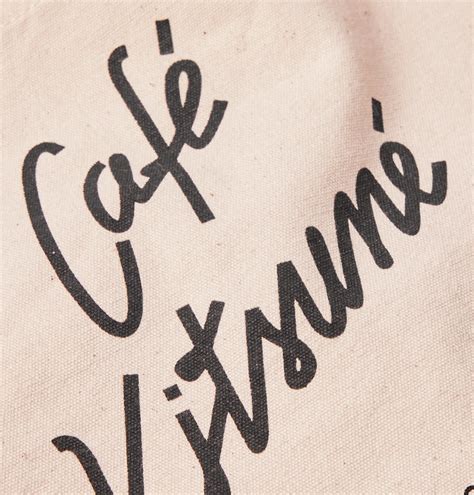 Café
Kitsuné